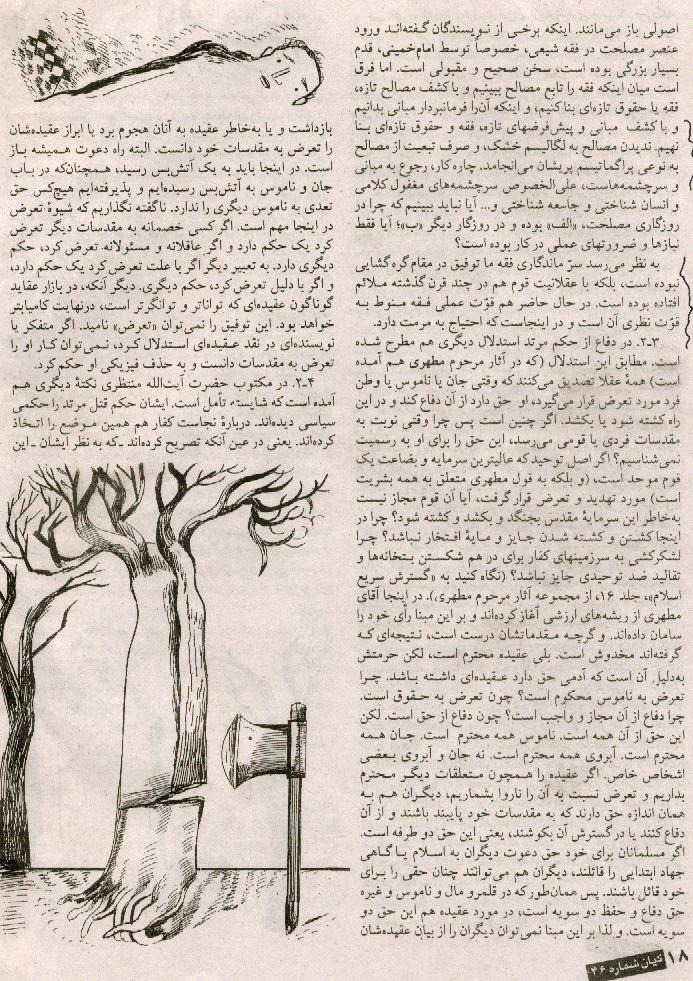 اصولی باز می‌مانند. اینکه برخی از نویسندگان گفته‌اند ورود
عنصر مصلحت در فقه شیعی، خصوصاً توسط امام‌خمینی، قدم
بسیار بزرگی بوده است، سخن صحیح و مقبولی است. اما فرق
است میان اینکه فقه را تابع مصالح ببینیم و باکشف مصالح تازه،
فقه یا حقوق تازه‌ای بناکنیم، و اینکه آن‌را فرمانبردار مبانی بدانیم
و باکشف مبانی و پیش‌فرضهای تازه، فقه و حقوق تازه‌ای بنا
نهیم. ندیدن مصالح به لگالیسم خشک، و صرف تبعیت از مصالح
به نوعی پراگماتیسم پریشان می‌انجامد. چاره کار، رجوع به مبانی
و سرچشمه‌هاست، علی‌الخصوص سرچشمه‌های مغفول کلامی
و انسان شناختی و جامعه شناختی و... آیا نباید ببینیم که چرا در
روزگاری مصلحت، «الف» بوده و در روزگار دیگر «ب»؛ آیا فقط
نیازها و ضرورتهای عملی در کار بوده است؟
به نظر می‌رسد سرّ ماندگاری فقه ما توفیق در مقام گره‌گشایی
نبوده است، بلکه با عقلانیت قوم هم در چند قرن گذشته ملائم
افتاده بوده است. در حال حاضر هم قوّت عملی فقه منوط به
قوّت نظری آن است و در اینجاست که احتیاج به مرمت دارد.
۲-۳. در دفاع از حکم مرتد استدلال دیگری هم مطرح شده
است. مطابق این استدلال (که در آثار مرحوم مطهری هم آمده
است) همهٔ عقلا تصدیق می‌کنند که وقتی جان یا ناموس یا وطن
فرد مورد تعرض قرار می‌گیرد، او حق دارد از آن دفاع کند و در این
راه کشته شود یا بکشد. اگر چنین است پس چرا وقتی نوبت به
مقدسات فردی یا قومی می‌رسد، این حق را برای او به رسمیت
نمی‌شناسیم؟ اگر اصل توحید که عالیترین سرمایه و بضاعت یک
قوم موحد است، (و بلکه به قول مطهری متعلق به همه بشریت
است) مورد تهدید و تعرض قرار گرفت، آیا آن قوم مجاز نیست
به‌خاطر این سرمایهٔ مقدس بجنگد و بکشد و کشته شود؟ چرا در
اینجا کشتن و کشته شدن جایز و مایهٔ افتخار نباشد؟ چرا
لشکرکشی به سرزمینهای کفار برای در هم شکستن بتخانه‌ها و
تقالید ضد توحیدی جایز نباشد؟ (نگاه کنید به «گسترش سریع
اسلام»، جلد ۱۶، از مجموعه آثار مرحوم مطهری). در اینجا آقای
مطهری از ریشه‌های ارزشی آغاز کرده‌اند و بر این مبنا رأی خود را
سامان داده‌اند. و گرچه مقدماتشان درست است، نتیجه‌ای که
گرفته‌اند مخدوش است. بلی عقیده محترم است، لکن حرمتش
به‌دلیل آن است که آدمی حق دارد عقیده‌ای داشته باشد. چرا
تعرض به ناموس محکوم است؟ چون تعرض به حقوق است.
چرا دفاع از آن مجاز و واجب است؟ چون دفاع از حق است. لکن
این حق از آن همه است. ناموس همه محترم است. جان همه
محترم است. آبروی همه محترم است. نه جان و آبروی بعضی
اشخاص خاص. اگر عقیده را همچون متعلقات دیگر محترم
بداریم و تعرض نسبت به آن را ناروا بشماریم، دیگران هم به
همان اندازه حق دارند که به مقدسات خود پایبند باشند و از آن
دفاع کنند یا در گسترش آن بکوشند، یعنی این حق دو طرفه است.
اگر مسلمانان برای خود حق دعوت دیگران به اسلام یا گاهی
جهاد ابتدایی را قائلند، دیگران هم می‌توانند چنان حقی را برای
خود قائل باشند. پس همان‌طور که در قلمرو مال و ناموس و غیره
حق دفاع و حفظ دو سویه است، در مورد عقیده هم این حق دو
سویه است. و لذا بر این مبنا نمی‌توان دیگران را از بیان عقیده‌شان
بازداشت و یا به‌خاطر عقیده به آنان هجوم برد یا ابراز عقیده‌شان
را تعرض به مقدسات خود دانست. البته راه دعوت همیشه باز
است. در اینجا باید به یک آتش‌بس رسید، همچنانکه در باب
جان و ناموس به آتش‌بس رسیده‌ایم و پذیرفته‌ایم هیچ‌کس حق
تعدی به ناموس دیگری را ندارد. ناگفته نگذاریم که شیوهٔ تعرض
در اینجا مهم است. اگر کسی خصمانه به مقدسات دیگر تعرض
کرد یک حکم دارد و اگر عاقلانه و مسئولانه تعرض کرد، حکم
دیگری دارد. به تعبیر دیگر اگر با علت تعرض کرد یک حکم دارد،
و اگر با دلیل تعرض کرد، حکم دیگری. دیگر آنکه، در بازار عقاید
گوناگون عقیده‌ای که تواناتر و توانگرتر است، درنهایت کامیابتر
خواهد بود. این توفیق را نمی‌توان «تعرض» نامید. اگر متفکر یا
نویسنده‌ای در نقد عقیده‌ای استدلال کرد، نمی‌توان کار او را
تعرض به مقدسات دانست و به حذف فیزیکی او حکم کرد.
۲-۴. در مکتوب حضرت آیت‌الله منتظری نکتهٔ دیگری هم
آمده است که شایسته تأمل است. ایشان حکم قتل مرتد را حکمی
سیاسی دیده‌اند. دربارهٔ نجاست کفار هم همین موضع را اتخاذ
کرده‌اند. یعنی در عین آنکه تصریح کرده‌اند ـ که به نظر ایشان ـ این
۱۸ کیان شماره ۴۶